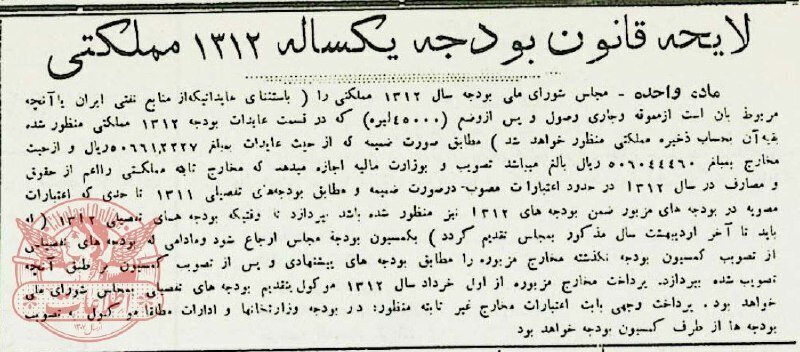 لایحه قانون بودجه یکساله ۱۳۱۲ مملکتی
ماده واحده - مجلس شورای ملی بودجه سال ۱۳۱۲ مملکتی را ( باستثنای عایداتیکه از منابع نفتی ایران یا آنچه
مربوط بان است از معوقه و جاری وصول و پس از وضع (۴۵۰۰۰ لیره) که در قسمت عایدات بودجه ۱۳۱۲ مملکتی منظور شده
بقیه آن بحساب ذخیره مملکتی منظور خواهد شد ) مطابق صورت ضمیمه که از حیث عایدات بمبلغ ۵۰۶۶۱۲۲۲۷ ریال و از حیث
مخارج بمبلغ ۵۰۶۰۴۴۴۶۰ ریال بالغ میباشد تصویب و بوزارت مالیه اجازه میدهد که مخارج ثابته مملکتی را اعم از حقوق
و مصارف در سال ۱۳۱۲ در حدود اعتبارات مصوب درصورت ضمیمه و مطابق بودجه‌های تفصیلی ۱۳۱۱ تا حدی که اعتبارات
مصوبه در بودجه های مزبور ضمن بودجه های ۱۳۱۲ نیز منظور شده باشد بپردازد تا وقتیکه بودجه های تفصیلی ۱۳۱۲ ( که
باید تا آخر اردیبهشت سال مذکور بمجلس تقدیم گردد ) بکمسیون بودجه مجلس ارجاع شود و مادامی که بودجه های تفصیلی
از تصویب کمسیون بودجه نگذشته مخارج مزبوره را مطابق بودجه های پیشنهادی و پس از تصویب کمسیون بر طبق آنچه
تصویب شده بپردازد. پرداخت مخارج مزبوره از اول خرداد سال ۱۳۱۲ موکول بتقدیم بودجه های تفصیلی بمجلس شورای ملی
خواهد بود . پرداخت وجهی بابت اعتبارات مخارج غیر ثابته منظور: در بودجه وزارتخانها و ادارات مطلقا موکول به تصویب
بودجه ها از طرف کمسیون بودجه خواهد بود